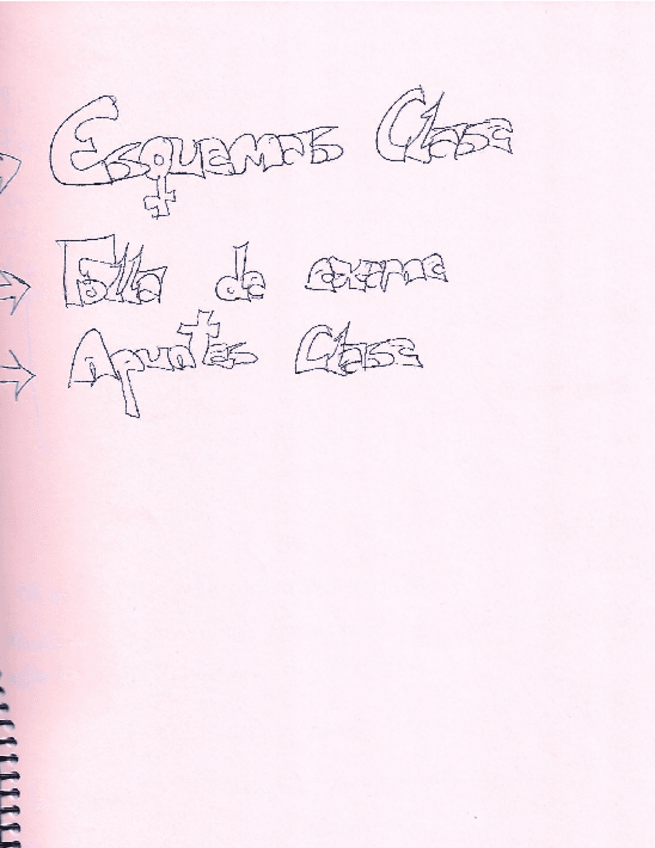 Esquemas Clase
Folla de exame
Apuntes Clase